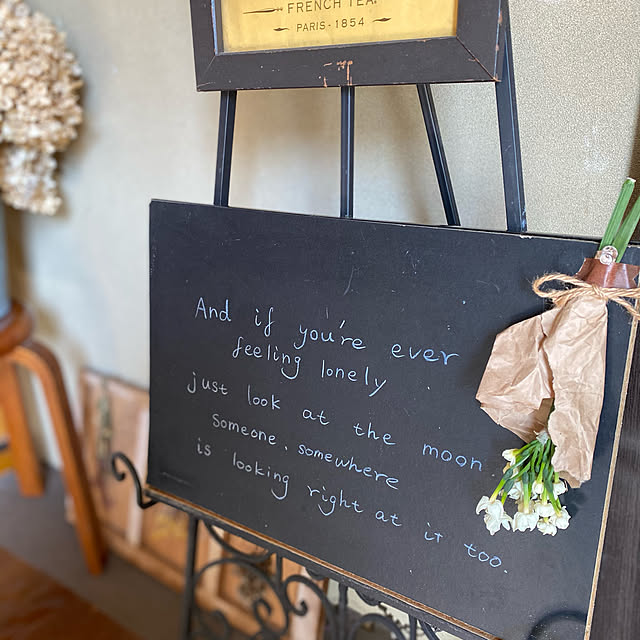 FRENCH TEA.
PARIS-1854
And if you're ever
feeling lonely
just look at the moon.
Someone. somewhere
is looking right at it too.